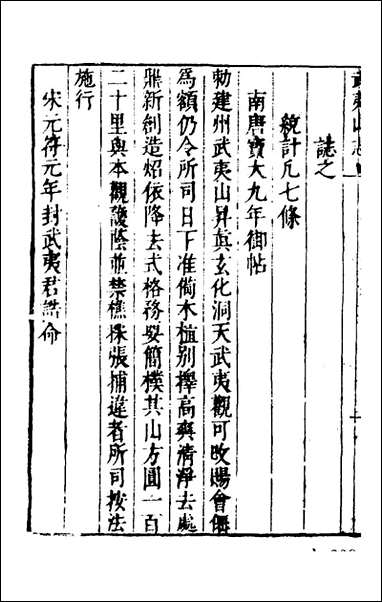 誌之
統計凡七條
南唐寶大九年御帖
勅建州武夷山昇真玄化洞天武夷觀可改賜會僊
為額仍令所司日下准備木植別擇高爽清淨去處
鼎新創造炤依降去式格務要簡樸其山方圓一百
二十里與本觀護蔭並禁樵採張捕違者所司按法
施行
宋元符元年封武夷君誥命